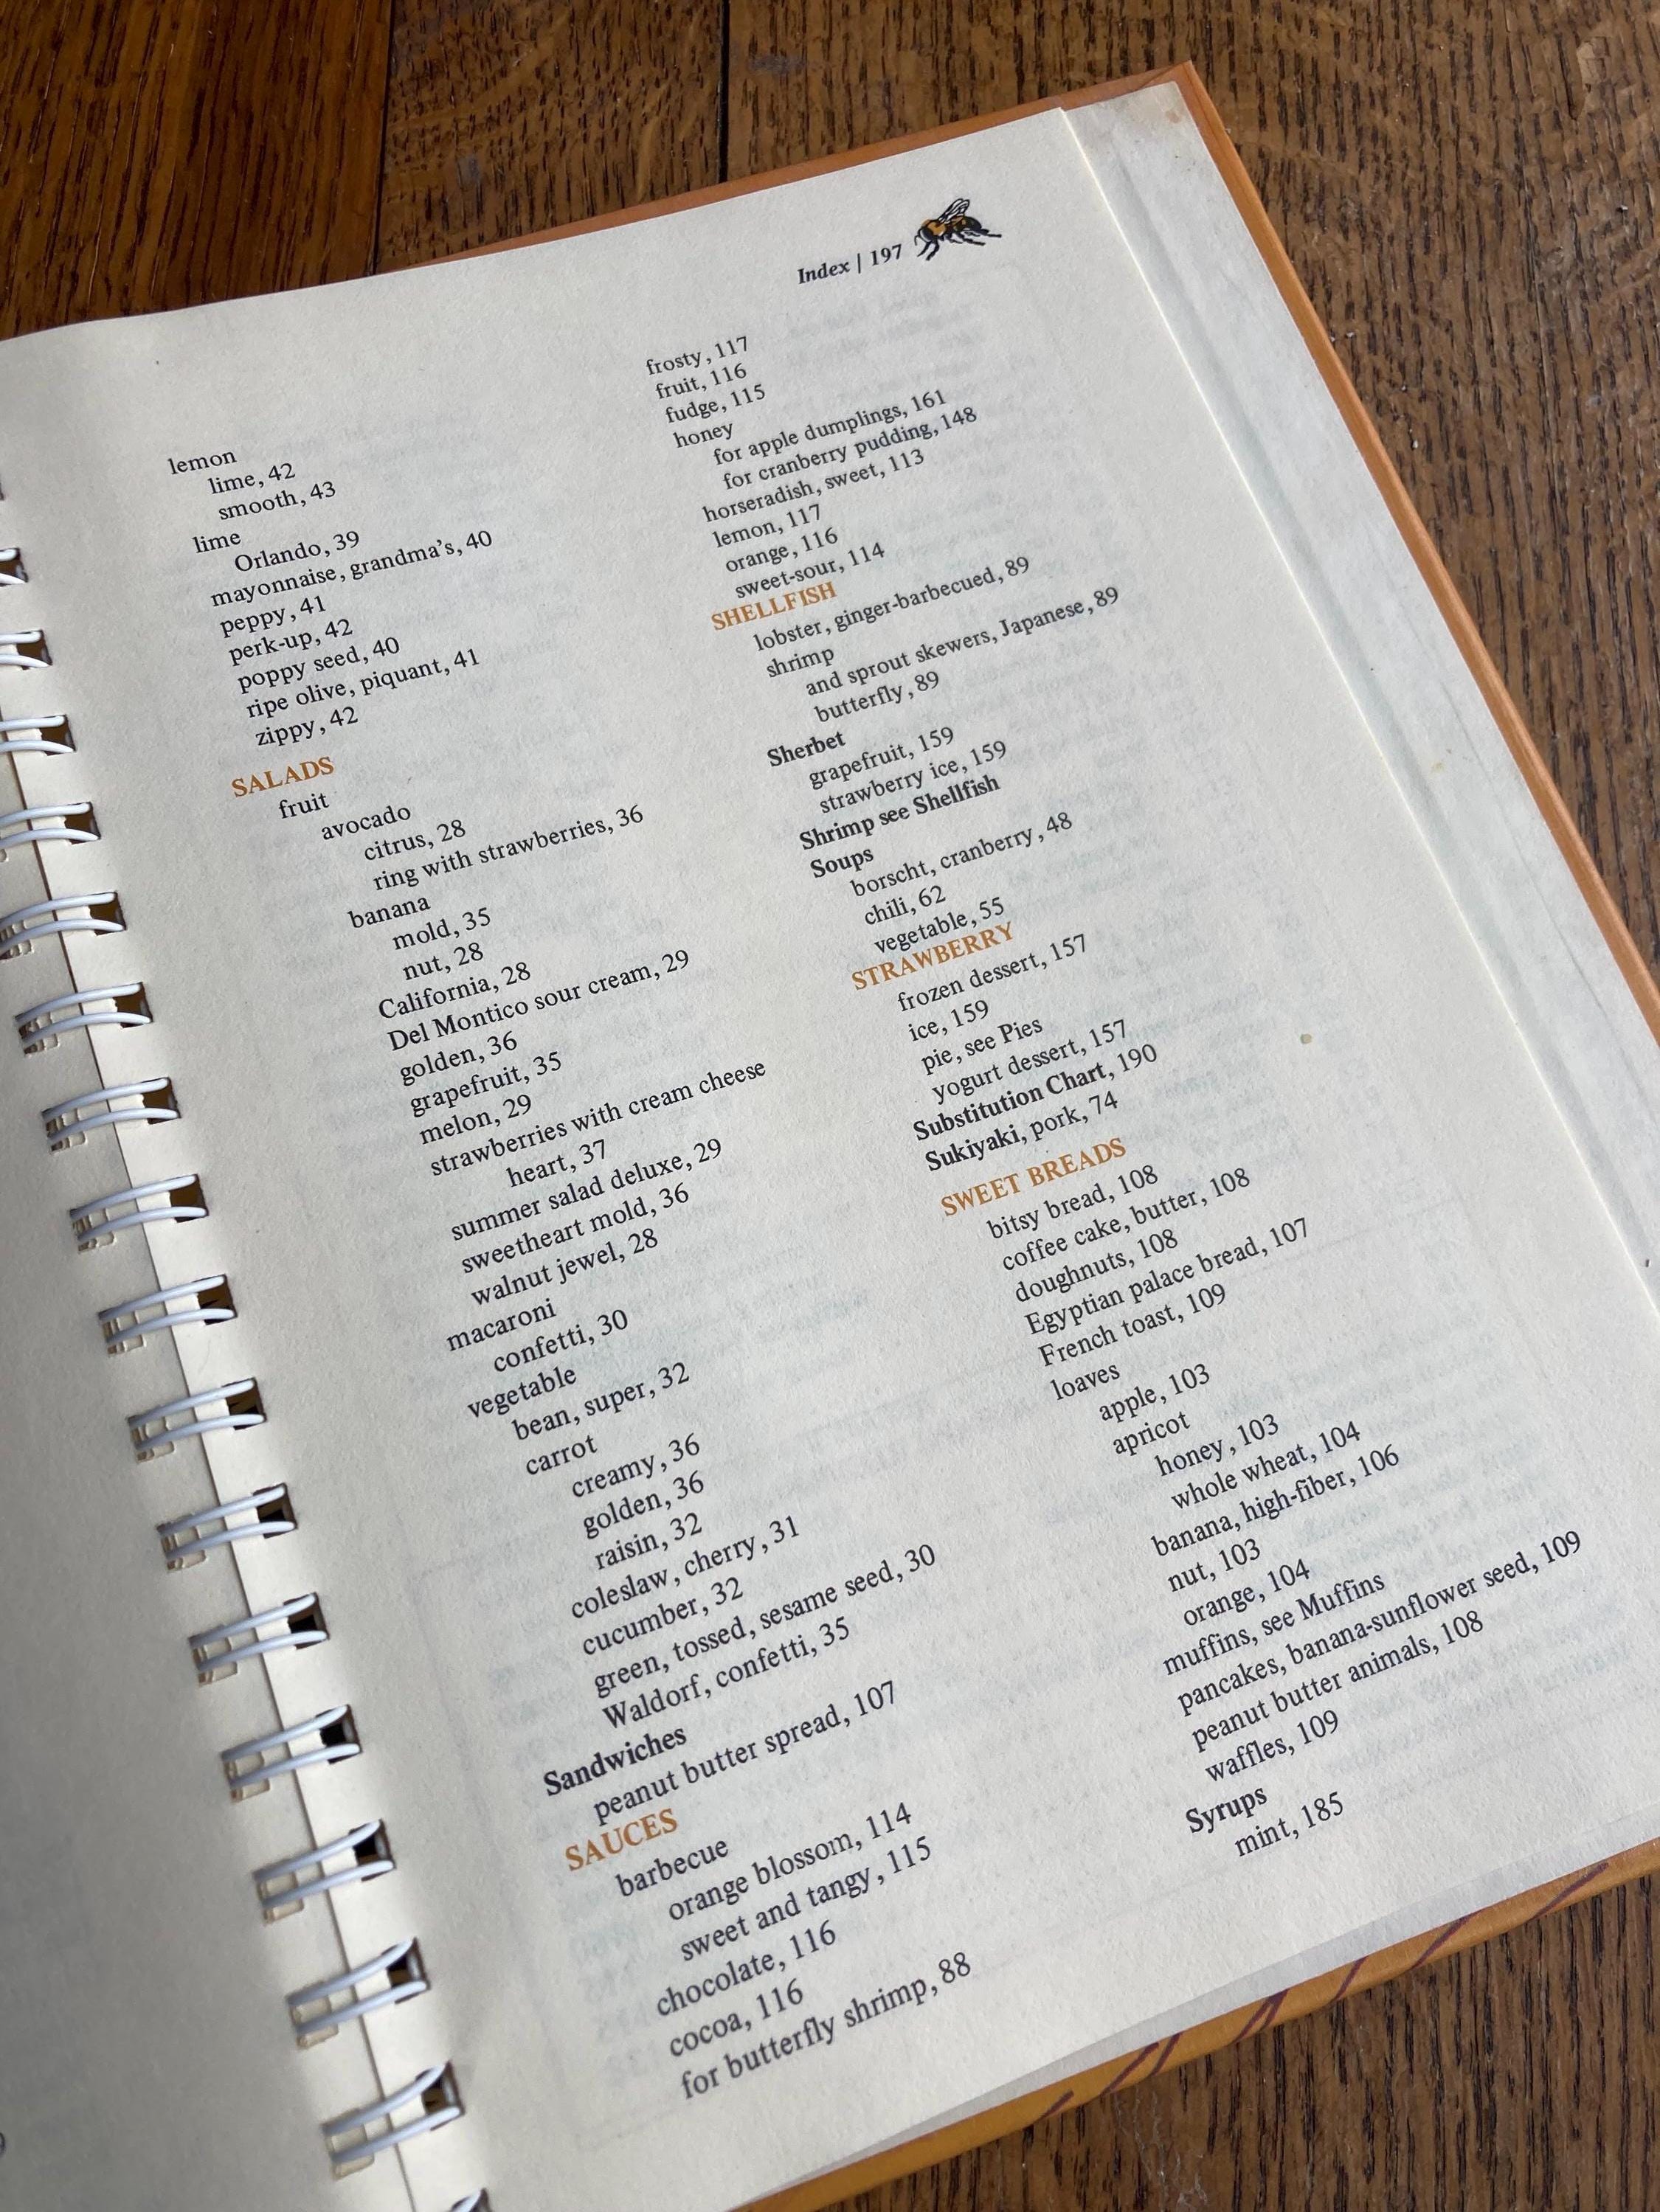 Index | 197
lemon
lime, 42
smooth, 43
lime
Orlando, 39
mayonnaise, grandma's, 40
peppy, 41
perk-up, 42
poppy seed, 40
ripe olive, piquant, 41
zippy, 42
SALADS
fruit
avocado
citrus, 28
ring with strawberries, 36
banana
mold, 35
nut, 28
California, 28
Del Montico sour cream, 29
golden, 36
grapefruit, 35
melon, 29
strawberries with cream cheese
heart, 37
summer salad deluxe, 29
sweetheart mold, 36
walnut jewel, 28
macaroni
confetti, 30
vegetable
bean, super, 32
carrot
creamy, 36
golden, 36
raisin, 32
coleslaw, cherry, 31
cucumber, 32
green, tossed, sesame seed, 30
Waldorf, confetti, 35
Sandwiches
peanut butter spread, 107
SAUCES
barbecue
orange blossom, 114
sweet and tangy, 115
chocolate, 116
cocoa, 116
for butterfly shrimp, 88
frosty, 117
fruit, 116
fudge, 115
honey
for apple dumplings, 161
for cranberry pudding, 148
horseradish, sweet, 113
lemon, 117
orange, 116
sweet-sour, 114
SHELLFISH
lobster, ginger-barbecued, 89
shrimp
and sprout skewers, Japanese, 89
butterfly, 89
Sherbet
grapefruit, 159
strawberry ice, 159
Shrimp see Shellfish
Soups
borscht, cranberry, 48
chili, 62
vegetable, 55
STRAWBERRY
frozen dessert, 157
ice, 159
pie, see Pies
yogurt dessert, 157
Substitution Chart, 190
Sukiyaki, pork, 74
SWEET BREADS
bitsy bread, 108
coffee cake, butter, 108
doughnuts, 108
Egyptian palace bread, 107
French toast, 109
loaves
apple, 103
apricot
honey, 103
whole wheat, 104
banana, high-fiber, 106
nut, 103
orange, 104
muffins, see Muffins
pancakes, banana-sunflower seed, 109
peanut butter animals, 108
waffles, 109
Syrups
mint, 185